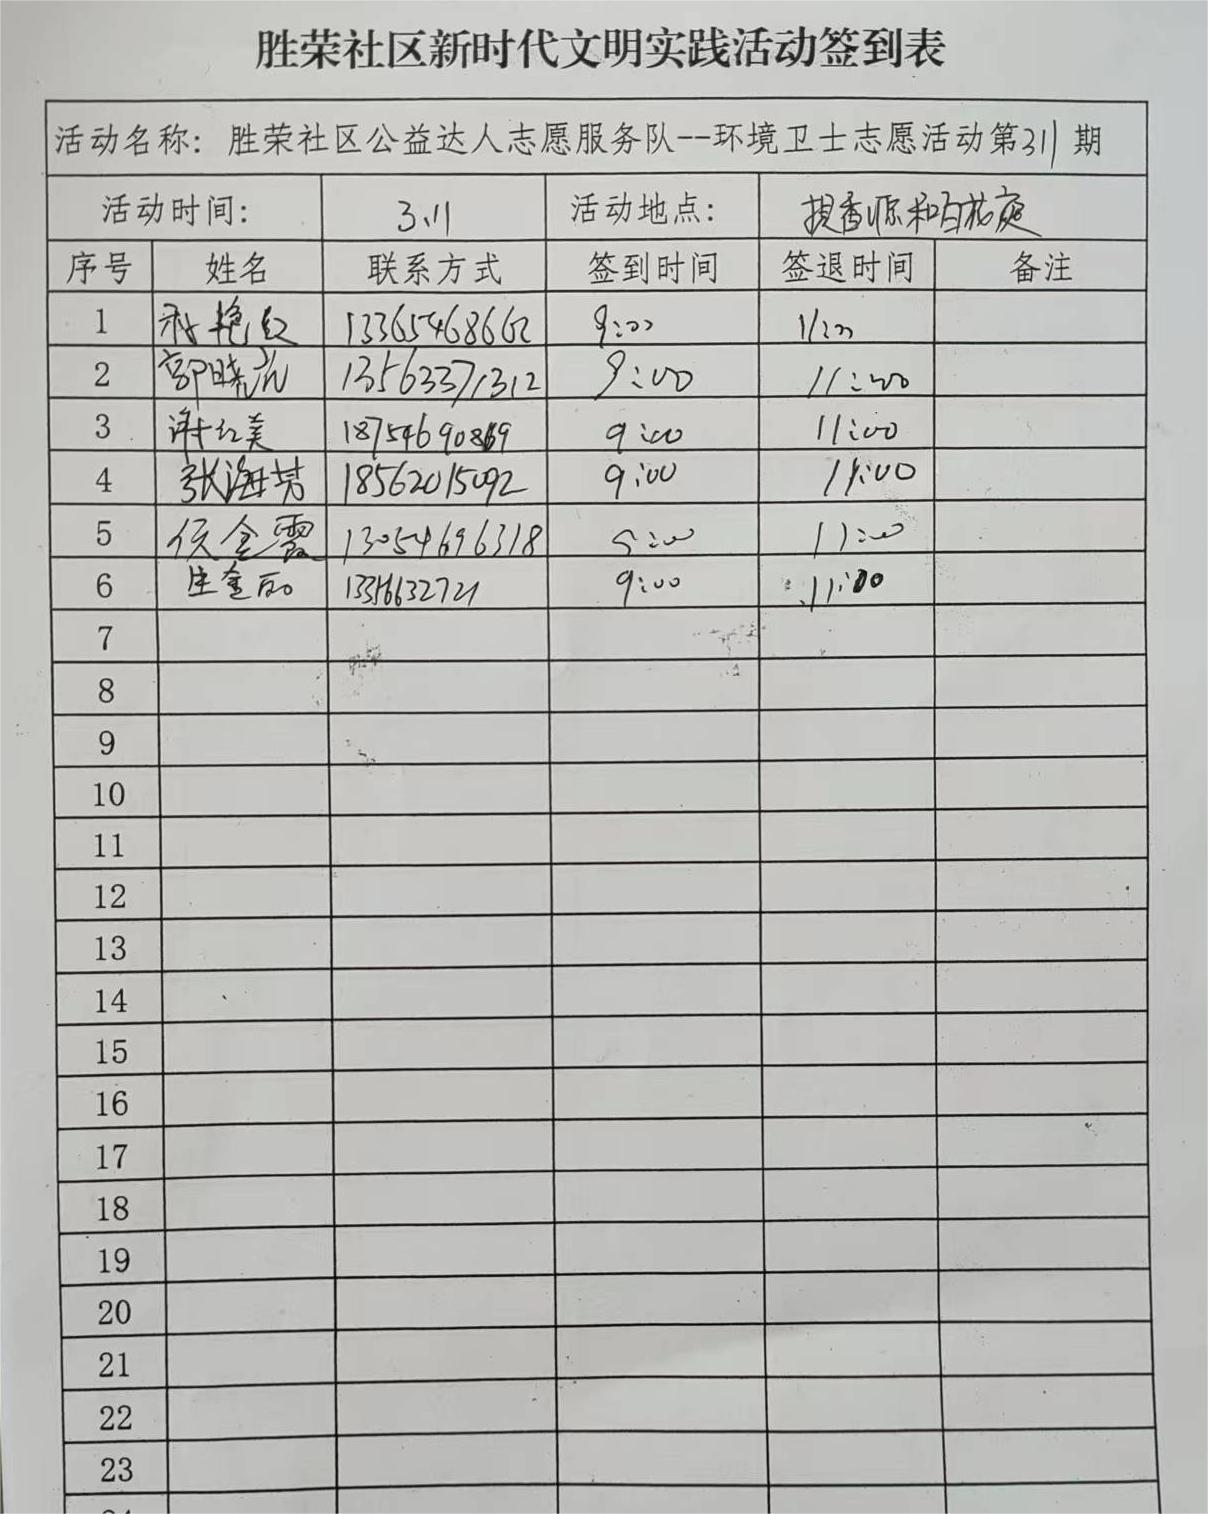 胜荣社区新时代文明实践活动签到表
活动名称：胜荣社区公益达人志愿服务队--环境卫士志愿活动第311期
活动时间： 3.11 活动地点： 香源和百花庭
序号 姓名 联系方式 签到时间 签退时间 备注
1 艳红 13365468662 9:00 11:00
2 郭晓 13563371312 9:00 11:00
3 谢红美 18754690869 9:00 11:00
4 张海芳 18562015092 9:00 11:00
5 侯金霞 13054696318 9:00 11:00
6 9:00 11:00
7
8
9
10
11
12
13
14
15
16
17
18
19
20
21
22
23